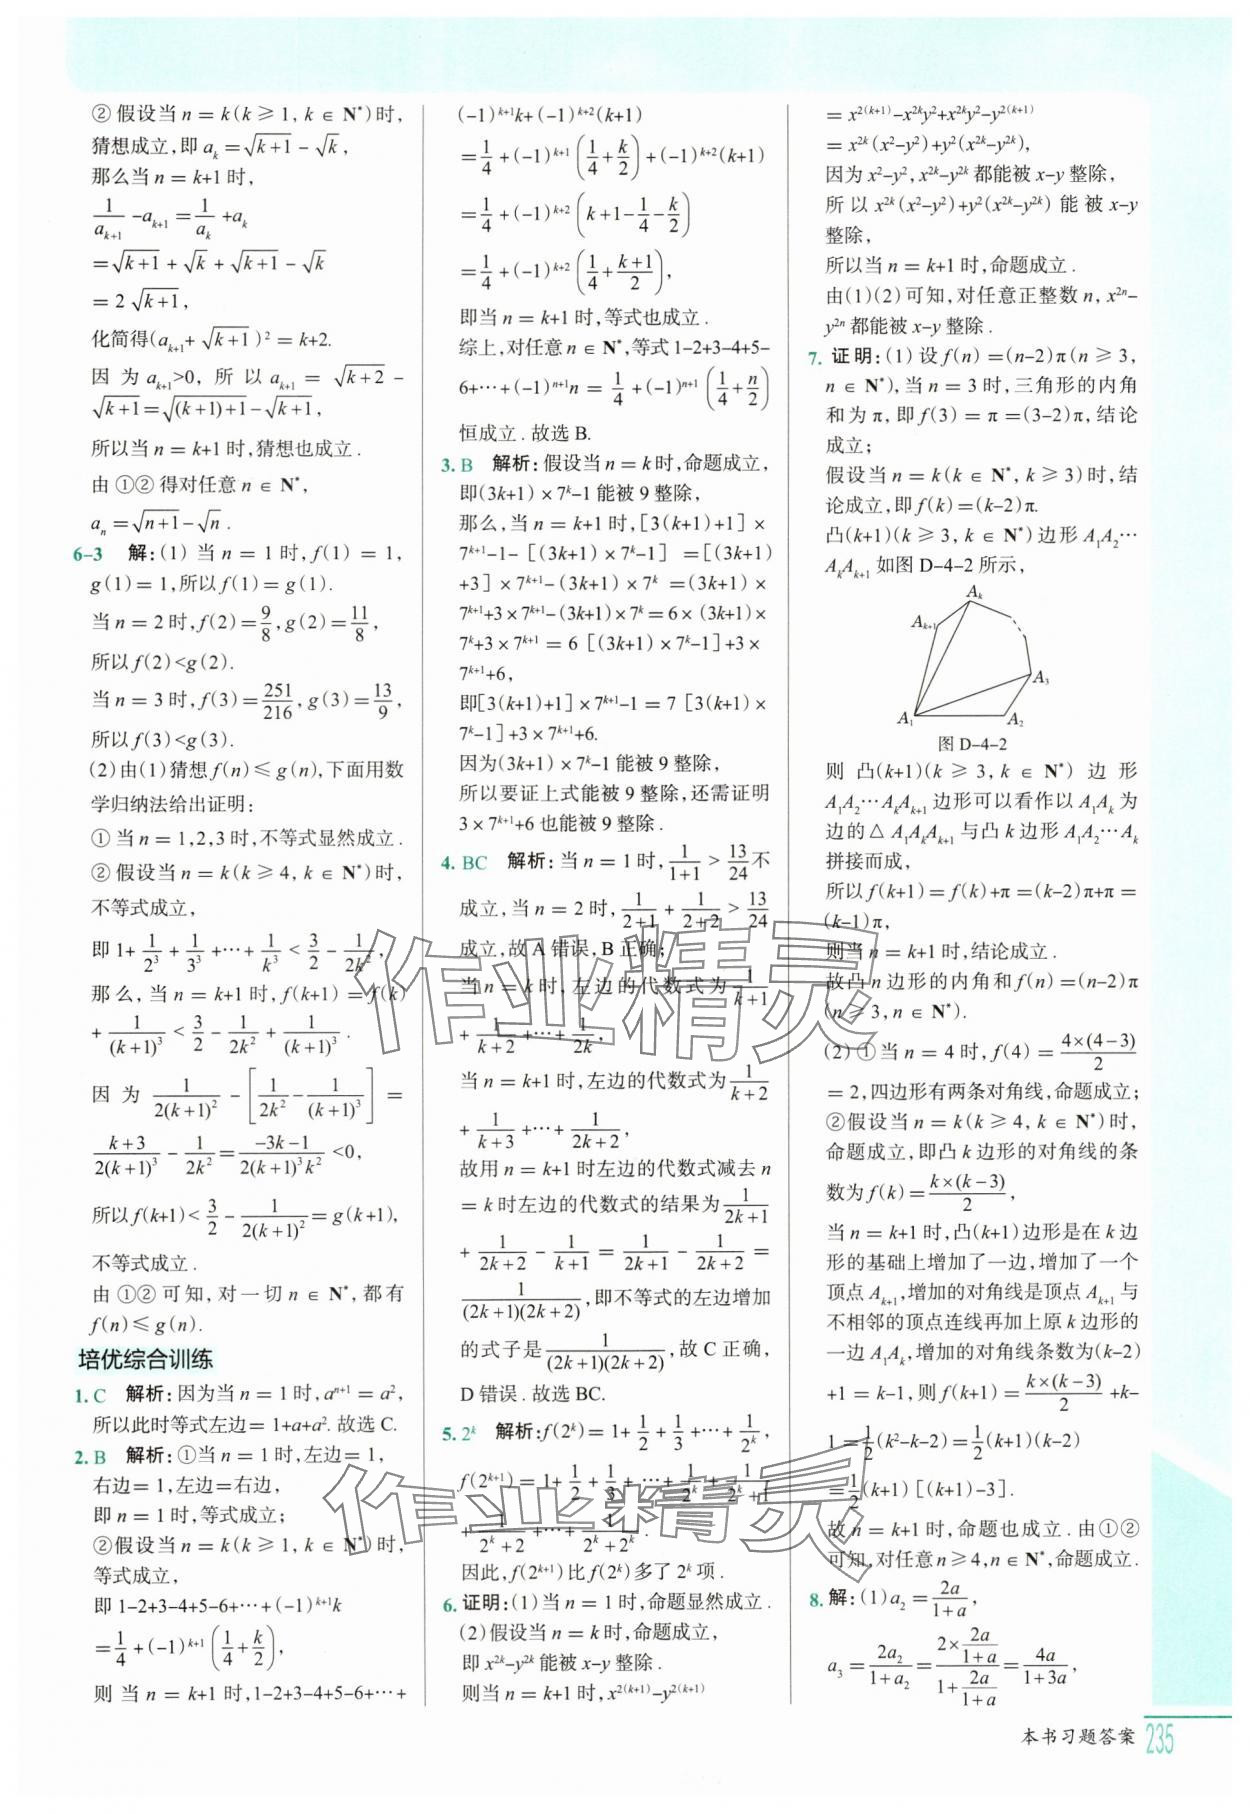 ② 假设当 n = k(k ≥ 1, k ∈ N*)时,
猜想成立,即 aₖ = √(k+1) − √k,
那么当 n = k+1 时,
1/aₖ₊₁ − aₖ₊₁ = 1/aₖ + aₖ
= √(k+1) + √k + √(k+1) − √k
= 2√(k+1),
化简得(aₖ₊₁ + √(k+1))² = k+2.
因为 aₖ₊₁>0, 所以 aₖ₊₁ = √(k+2) −
√(k+1) = √((k+1)+1) − √(k+1),
所以当 n = k+1 时,猜想也成立.
由 ①② 得对任意 n ∈ N*,
aₙ = √(n+1) − √n.
6-3 解:(1) 当 n = 1 时, f(1) = 1,
g(1) = 1,所以 f(1) = g(1).
当 n = 2 时, f(2) = 9/8, g(2) = 11/8,
所以 f(2)<g(2).
当 n = 3 时, f(3) = 251/216, g(3) = 13/9,
所以 f(3)<g(3).
(2)由(1)猜想 f(n)≤g(n),下面用数
学归纳法给出证明:
① 当 n = 1,2,3 时,不等式显然成立.
② 假设当 n = k(k ≥ 4, k ∈ N*)时,
不等式成立,
即 1+1/2³+1/3³+⋯+1/k³<3/2−1/2k²,
那么,当 n = k+1 时, f(k+1) = f(k)
+1/(k+1)³<3/2−1/2k²+1/(k+1)³.
因为 1/2(k+1)² − [1/2k² − 1/(k+1)³] =
(k+3)/2(k+1)³ − 1/2k² = (−3k−1)/2(k+1)³k² <0,
所以 f(k+1)<3/2−1/2(k+1)² = g(k+1),
不等式成立.
由 ①② 可知,对一切 n ∈ N*,都有
f(n)≤g(n).
培优综合训练
1. C 解析:因为当 n = 1 时, aⁿ⁺¹ = a²,
所以此时等式左边 = 1+a+a². 故选 C.
2. B 解析:①当 n = 1 时,左边 = 1,
右边 = 1,左边 = 右边,
即 n = 1 时,等式成立.
②假设当 n = k(k ≥ 1, k ∈ N*)时,
等式成立,
即 1−2+3−4+5−6+⋯+(−1)ᵏ⁺¹k
= 1/4+(−1)ᵏ⁺¹(1/4+k/2),
则当 n = k+1 时, 1−2+3−4+5−6+⋯+
(−1)ᵏ⁺¹k+(−1)ᵏ⁺²(k+1)
= 1/4+(−1)ᵏ⁺¹(1/4+k/2)+(−1)ᵏ⁺²(k+1)
= 1/4+(−1)ᵏ⁺²(k+1−1/4−k/2)
= 1/4+(−1)ᵏ⁺²(1/4+(k+1)/2),
即当 n = k+1 时,等式也成立.
综上,对任意 n ∈ N*,等式 1−2+3−4+5−
6+⋯+(−1)ⁿ⁺¹n = 1/4+(−1)ⁿ⁺¹(1/4+n/2)
恒成立. 故选 B.
3. B 解析:假设当 n = k 时,命题成立,
即(3k+1)×7ᵏ−1 能被 9 整除,
那么,当 n = k+1 时,[3(k+1)+1]×
7ᵏ⁺¹−1−[(3k+1)×7ᵏ−1] = [(3k+1)
+3]×7ᵏ⁺¹−(3k+1)×7ᵏ = (3k+1)×
7ᵏ⁺¹+3×7ᵏ⁺¹−(3k+1)×7ᵏ = 6×(3k+1)×
7ᵏ+3×7ᵏ⁺¹ = 6[(3k+1)×7ᵏ−1]+3×
7ᵏ⁺¹+6,
即[3(k+1)+1]×7ᵏ⁺¹−1 = 7[3(k+1)×
7ᵏ−1]+3×7ᵏ⁺¹+6.
因为(3k+1)×7ᵏ−1 能被 9 整除,
所以要证上式能被 9 整除,还需证明
3×7ᵏ⁺¹+6 也能被 9 整除.
4. BC 解析:当 n = 1 时, 1/(1+1) > 13/24 不
成立,当 n = 2 时, 1/(2+1)+1/(2+2)>13/24
成立,故 A 错误,B 正确;
当 n = k 时,左边的代数式为 1/(k+1)
+1/(k+2)+⋯+1/2k,
当 n = k+1 时,左边的代数式为 1/(k+2)
+1/(k+3)+⋯+1/(2k+2),
故用 n = k+1 时左边的代数式减去 n
= k 时左边的代数式的结果为 1/(2k+1)
+1/(2k+2)−1/(k+1) = 1/(2k+1)−1/(2k+2) =
1/(2k+1)(2k+2),即不等式的左边增加
的式子是 1/(2k+1)(2k+2),故 C 正确,
D 错误. 故选 BC.
5. 2ᵏ 解析: f(2ᵏ) = 1+1/2+1/3+⋯+1/2ᵏ,
f(2ᵏ⁺¹) = 1+1/2+1/3+⋯+1/2ᵏ+1/(2ᵏ+1)
+1/(2ᵏ+2)+⋯+1/(2ᵏ+2ᵏ),
因此, f(2ᵏ⁺¹)比 f(2ᵏ)多了 2ᵏ 项.
6. 证明:(1)当 n = 1 时,命题显然成立.
(2)假设当 n = k 时,命题成立,
即 x²ᵏ−y²ᵏ 能被 x−y 整除.
则当 n = k+1 时, x²⁽ᵏ⁺¹⁾−y²⁽ᵏ⁺¹⁾
= x²⁽ᵏ⁺¹⁾−x²ᵏy²+x²ᵏy²−y²⁽ᵏ⁺¹⁾
= x²ᵏ(x²−y²)+y²(x²ᵏ−y²ᵏ),
因为 x²−y², x²ᵏ−y²ᵏ 都能被 x−y 整除,
所以 x²ᵏ(x²−y²)+y²(x²ᵏ−y²ᵏ) 能被 x−y
整除,
所以当 n = k+1 时,命题成立.
由(1)(2)可知,对任意正整数 n, x²ⁿ−
y²ⁿ 都能被 x−y 整除.
7. 证明:(1) 设 f(n) = (n−2)π(n ≥ 3,
n ∈ N*),当 n = 3 时,三角形的内角
和为 π,即 f(3) = π = (3−2)π,结论
成立;
假设当 n = k(k ∈ N*, k ≥ 3)时,结
论成立,即 f(k) = (k−2)π.
凸(k+1)(k ≥ 3, k ∈ N*)边形 A₁A₂⋯
AₖAₖ₊₁ 如图 D-4-2 所示,
Aₖ
Aₖ₊₁
A₃
A₁
A₂
图 D-4-2
则 凸(k+1)(k ≥ 3, k ∈ N*) 边形
A₁A₂⋯AₖAₖ₊₁ 边形可以看作以 A₁Aₖ 为
边的 △ A₁AₖAₖ₊₁ 与凸 k 边形 A₁A₂⋯Aₖ
拼接而成,
所以 f(k+1) = f(k)+π = (k−2)π+π =
(k−1)π,
则当 n = k+1 时,结论成立.
故凸 n 边形的内角和 f(n) = (n−2)π
(n ≥ 3, n ∈ N*).
(2) ①当 n = 4 时, f(4) = 4×(4−3)/2
= 2,四边形有两条对角线,命题成立;
②假设当 n = k(k ≥ 4, k ∈ N*)时,
命题成立,即凸 k 边形的对角线的条
数为 f(k) = k×(k−3)/2,
当 n = k+1 时,凸(k+1)边形是在 k 边
形的基础上增加了一边,增加了一个
顶点 Aₖ₊₁,增加的对角线是顶点 Aₖ₊₁ 与
不相邻的顶点连线再加上原 k 边形的
一边 A₁Aₖ,增加的对角线条数为(k−2)
+1 = k−1,则 f(k+1) = k×(k−3)/2 +k−
1 = 1/2(k²−k−2) = 1/2(k+1)(k−2)
= 1/2(k+1)[(k+1)−3].
故 n = k+1 时,命题也成立. 由①②
可知,对任意 n≥4, n∈N*,命题成立.
8. 解:(1) a₂ = 2a/(1+a),
a₃ = 2a₂/(1+a₂) = (2×2a/(1+a))/(1+2a/(1+a)) = 4a/(1+3a),
作业精灵
作业精灵
本书习题答案 235